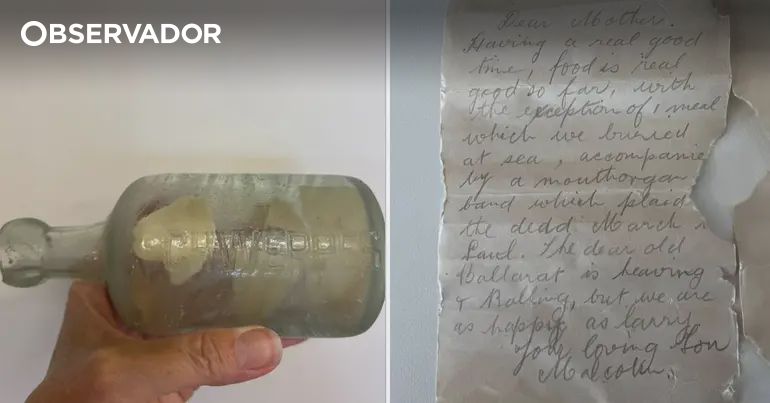 OBSERVADOR
Dear Mother.
Having a real good
time, food is real
good so far, with
the exception of 1 meal
which we buried
at sea, accompanie
by a mouthorgan
band which plaid
the dedd March
Saul. The dear old
Ballarat is heaving
& Rolling, but we are
as happy as larry
Your loving Son
Malcolm.